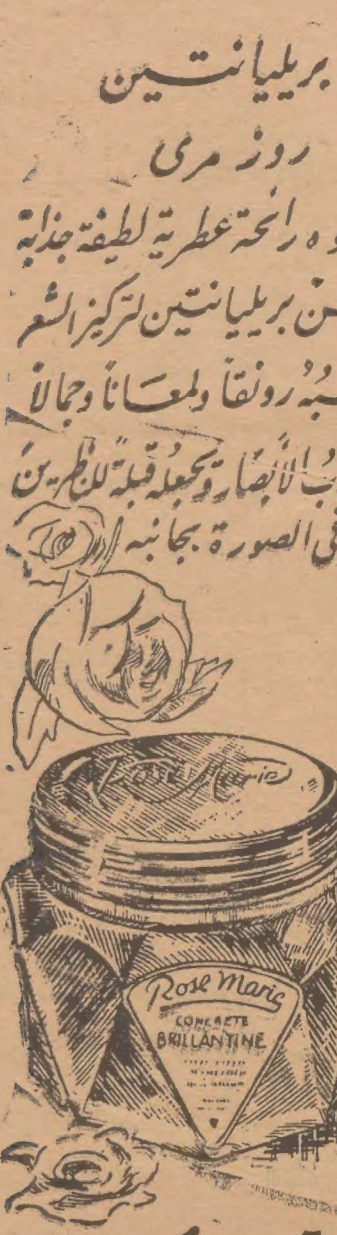 بريليانتين
روز مرى
رائحة عطرية لطيفة جذابة
بريليانتين لتركيز الشعر
رونقاً ولمعاناً وجمالاً
الأبصار ويجعله قبلة للناظرين
الصورة بجانبه
Rose Marie
Rose Marie
CONCRETE
BRILLANTINE